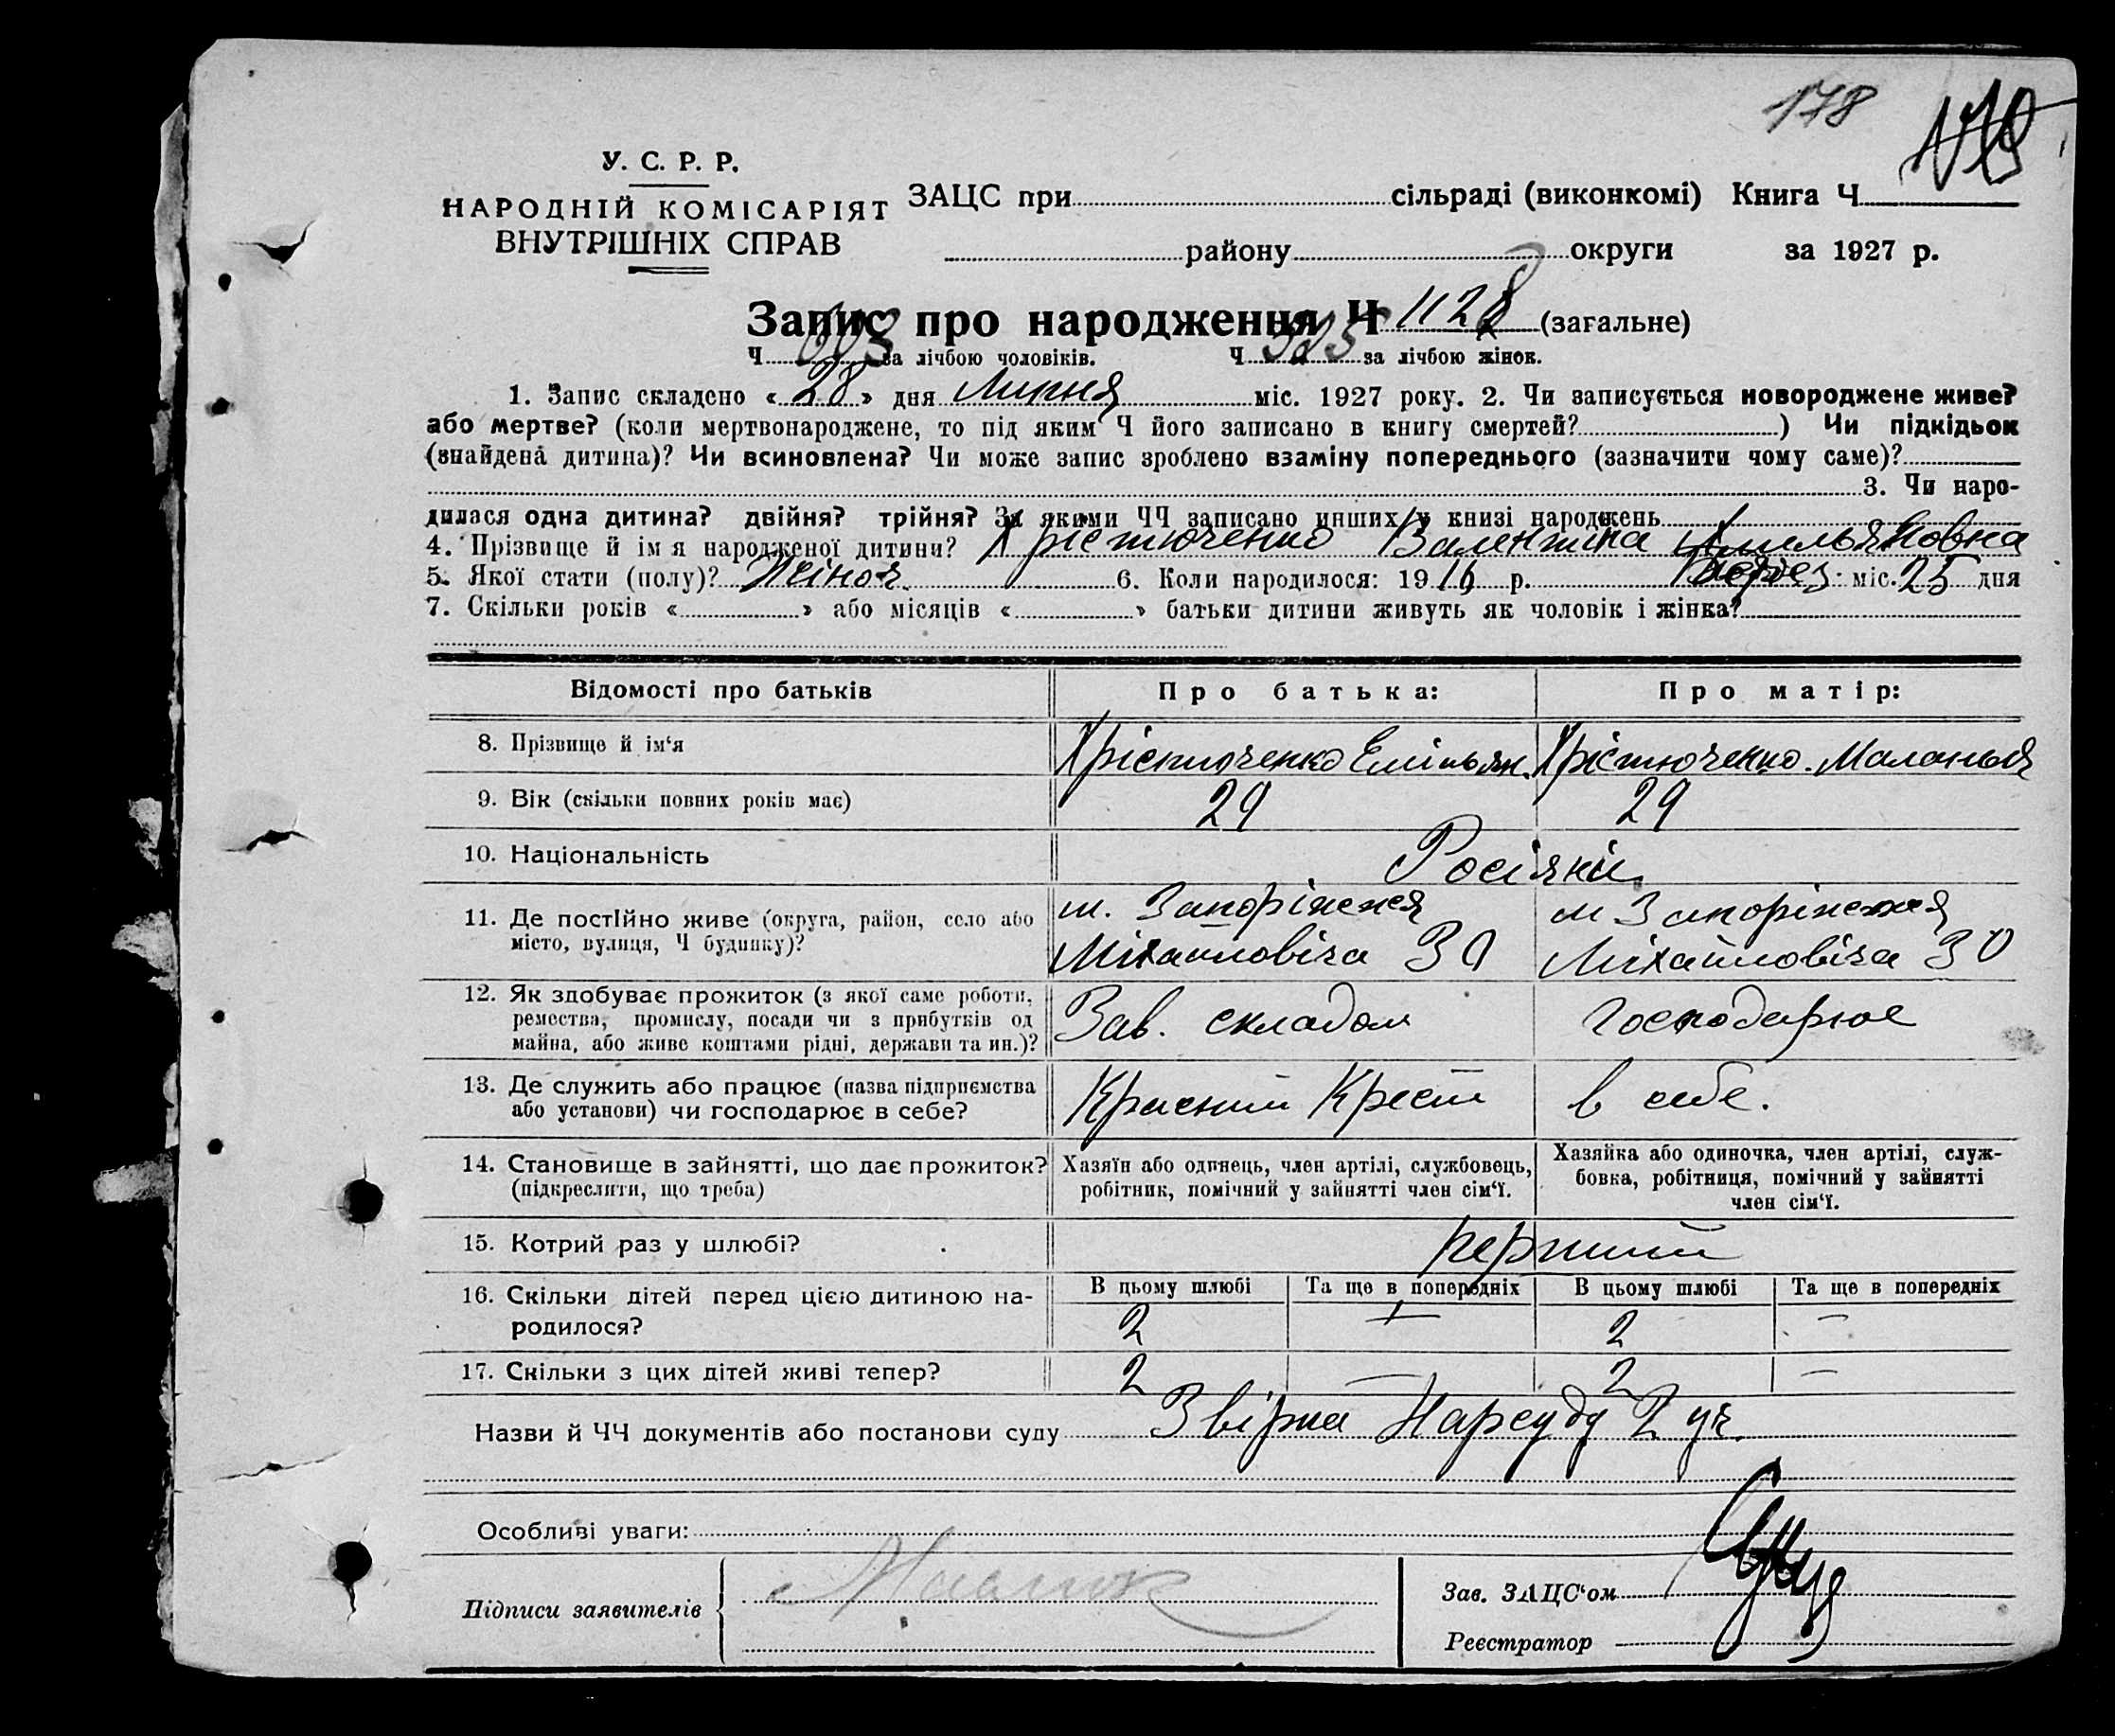 178
У. С. Р. Р.
НАРОДНІЙ КОМІСАРІЯТ
ВНУТРІШНІХ СПРАВ
ЗАЦС при сільраді (виконкомі) Книга Ч
району округи за 1927 р.
Запис про народження Ч 1128 (загальне)
Ч 603 за лічбою чоловіків. Ч за лічбою жінок.
1. Запис складено « 28 » дня Липня міс. 1927 року. 2. Чи записується новороджене живе?
або мертве? (коли мертвонароджене, то під яким Ч його записано в книгу смертей? ) Чи підкідьок
(знайдена дитина)? Чи всиновлена? Чи може запис зроблено взаміну попереднього (зазначити чому саме)?
3. Чи наро-
дилася одна дитина? двійня? трійня? За якими ЧЧ записано инших у книзі народжень
4. Прізвище й імя народженої дитини? Хрістюченко Валентіна Омельяновна
5. Якої стати (полу)? Жіноч. 6. Коли народилося: 1916 р. міс. 25 дня
7. Скільки років « » або місяців « » батьки дитини живуть як чоловік і жінка?
Відомості про батьків Про батька: Про матір:
8. Прізвище й ім‘я Хрістюченко Емільян. Хрістюченко Маланья
9. Вік (скільки повних років має) 29 29
10. Національність Росіяни
11. Де постійно живе (округа, район, село або місто, вулиця, Ч будинку)?
м. Запоріжжя м Запоріжжя
Міхайловіча 30 Міхайловіча 30
12. Як здобуває прожиток (з якої саме роботи,
ремества, промислу, посади чи з прибутків од
майна, або живе коштами рідні, держави та ин.)?
Зав. складом господарює
13. Де служить або працює (назва підприємства
або установи) чи господарює в себе?
Красний Крест в себе.
14. Становище в зайнятті, що дає прожиток?
(підкреслити, що треба)
Хазяїн або одинець, член артілі, службовець,
робітник, помічний у зайнятті член сім‘ї.
Хазяйка або одиночка, член артілі, служ-
бовка, робітниця, помічний у зайнятті
член сім‘ї.
15. Котрий раз у шлюбі? перший
16. Скільки дітей перед цією дитиною на-
родилося?
В цьому шлюбі Та ще в попередніх В цьому шлюбі Та ще в попередніх
2 — 2 —
17. Скільки з цих дітей живі тепер? 2 — 2 —
Назви й ЧЧ документів або постанови суду Звірка Нарсуду 2 уч.
Особливі уваги:
Підписи заявителів
Зав. ЗАЦС‘ом
Реєстратор